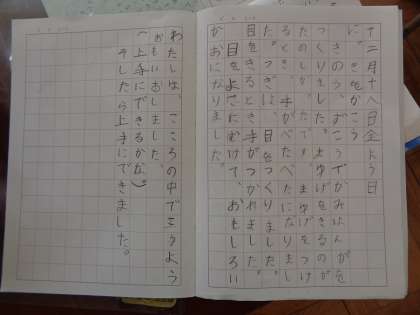 十二月十八日金よう日
に、きをがこう
きのう、ずこうでかみはんがを
つくりました。まゆげをきるのが
たのしかったです。まゆげをつけ
るとき、手がべたべたになりまし
た。つぎは、目をつくりました。
目をきるとき手がつかれました。
目をよこにむけて、おもしろい
かおになりました。
わたしは、こころの中でこうよう
おもいおしました。
(上手にできるかな。)
そしたら上手にできました。